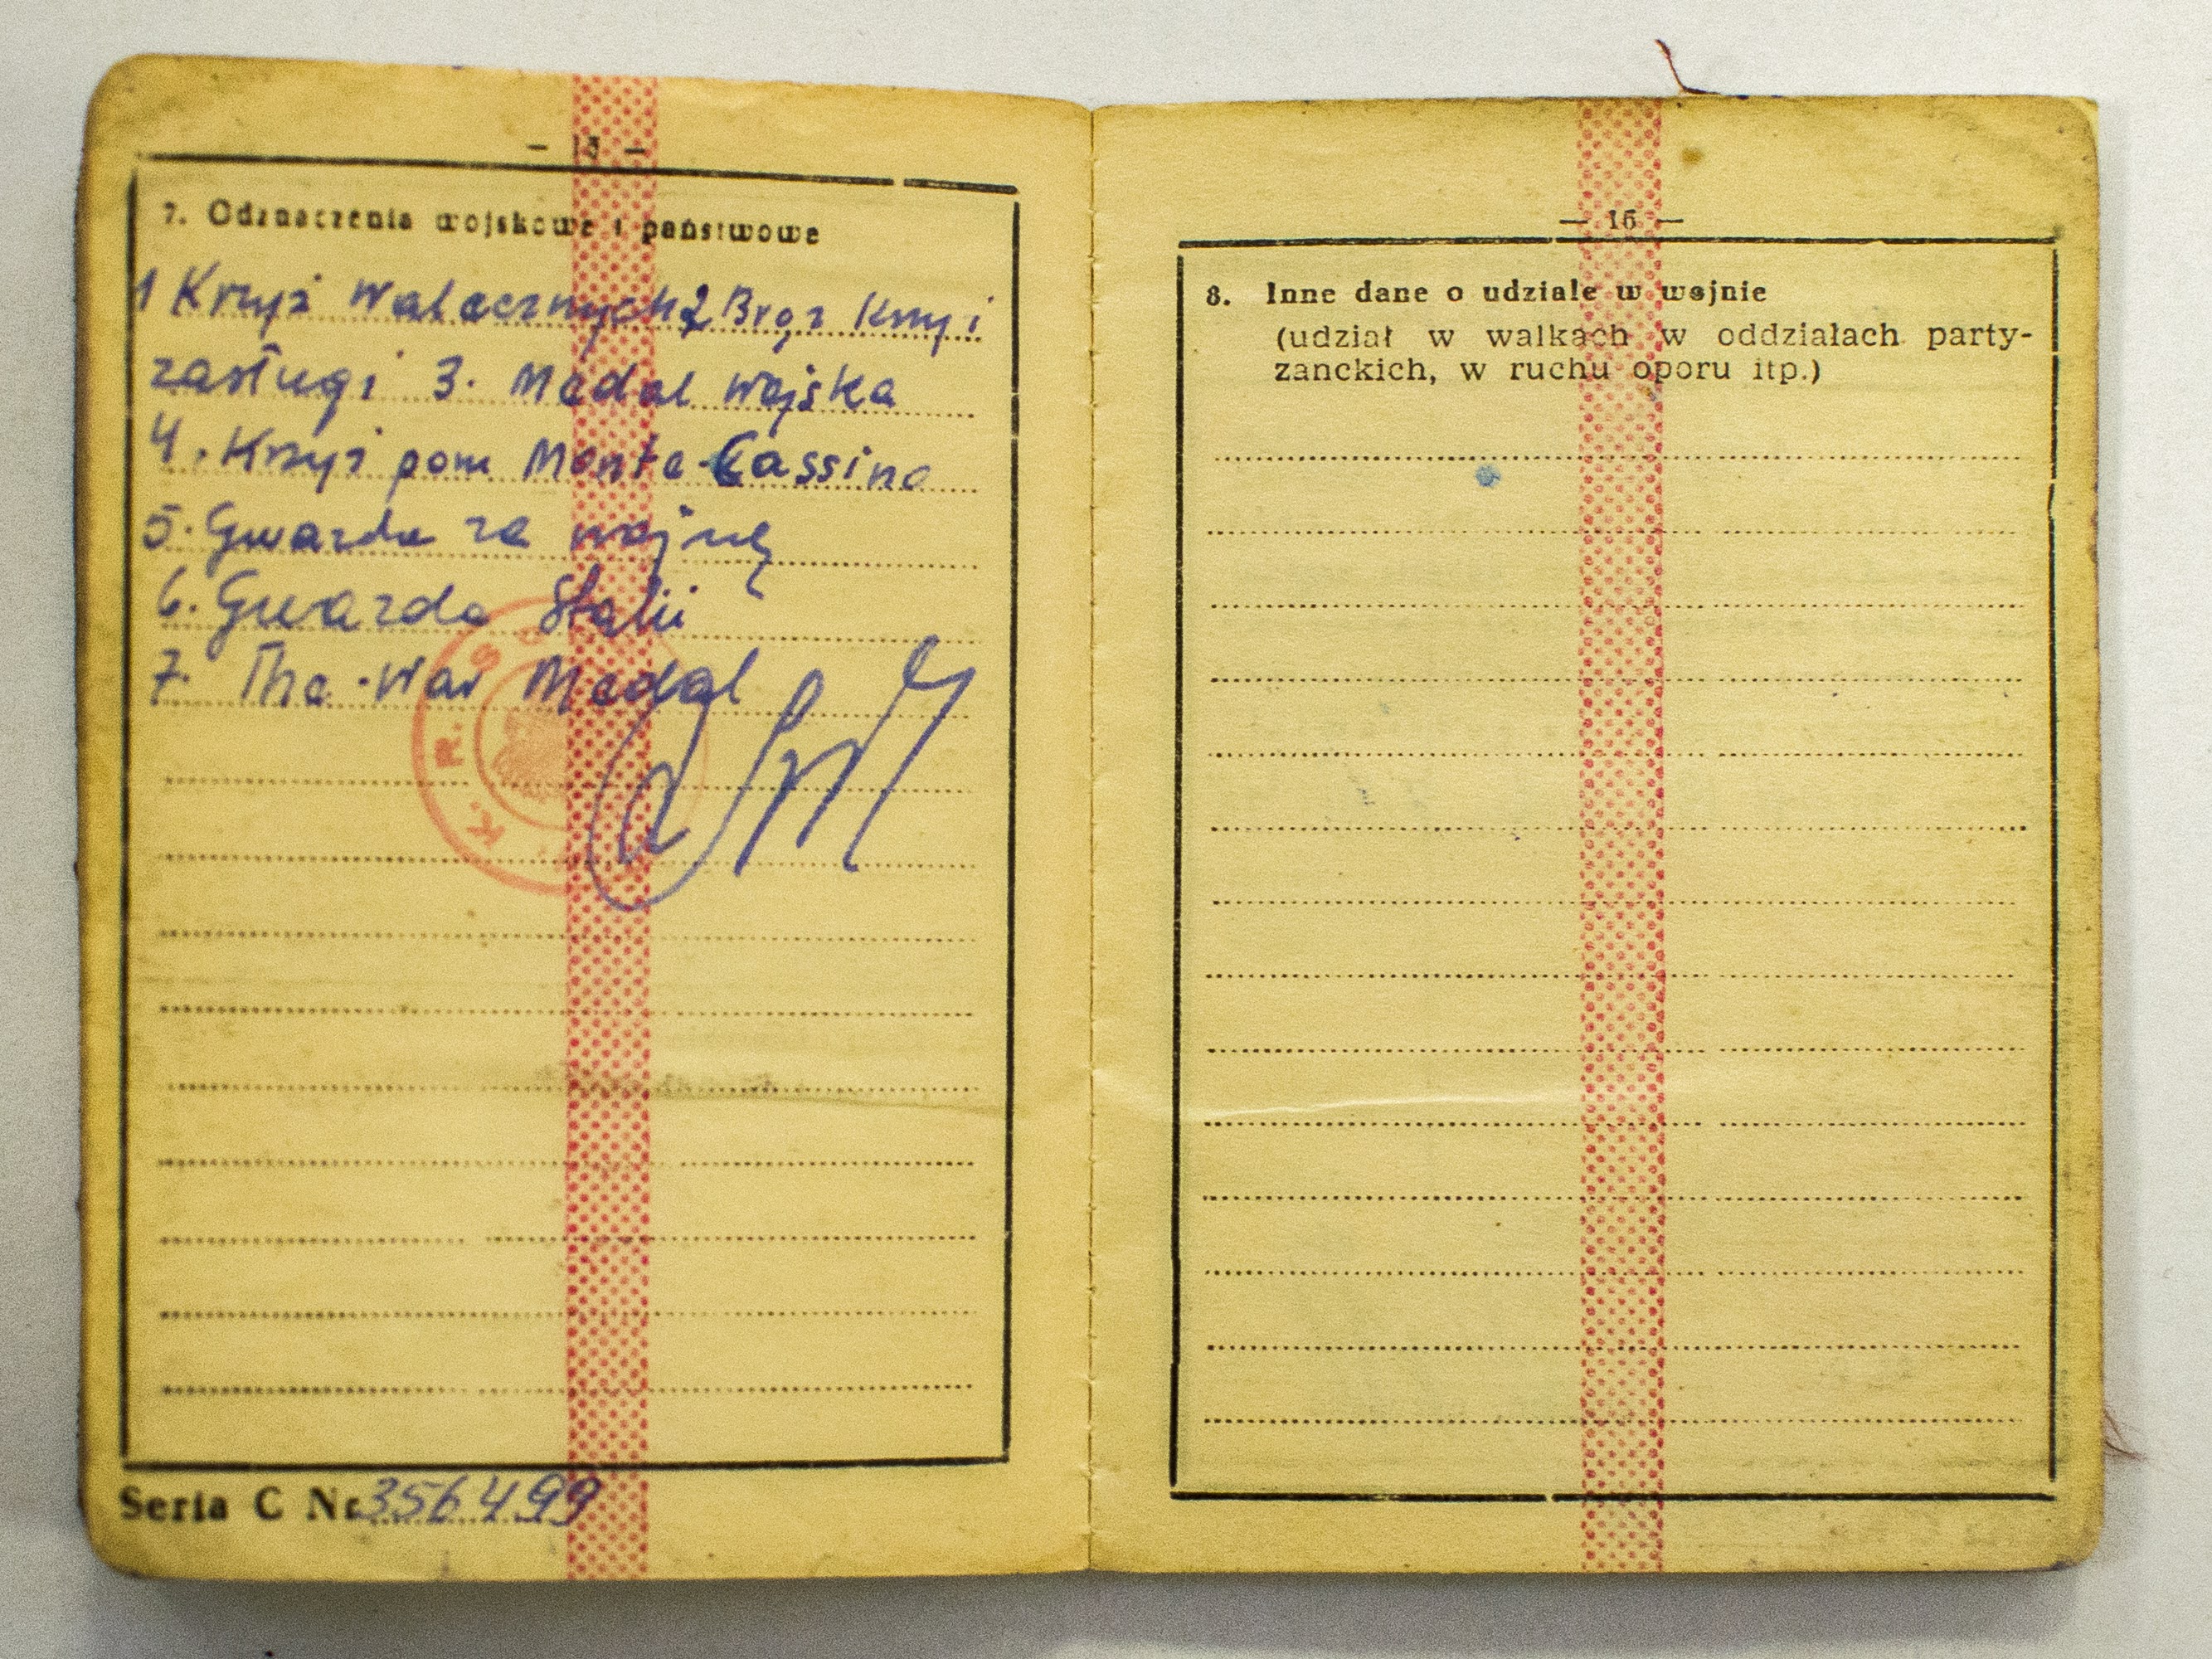 — 15 —
7. Odznaczenia wojskowe i państwowe
1 Krzyż Walecznych 2 Brąz Krzyż
zasługi 3. Medal Wojska
4. Krzyż pam Monte-Cassino
5. Gwazda za wojnę
6. Gwazda Italii
7. The-War Medal
K. R.
Seria C Nr 356499
— 16 —
8. Inne dane o udziale w wojnie
(udział w walkach w oddziałach party-
zanckich, w ruchu oporu itp.)